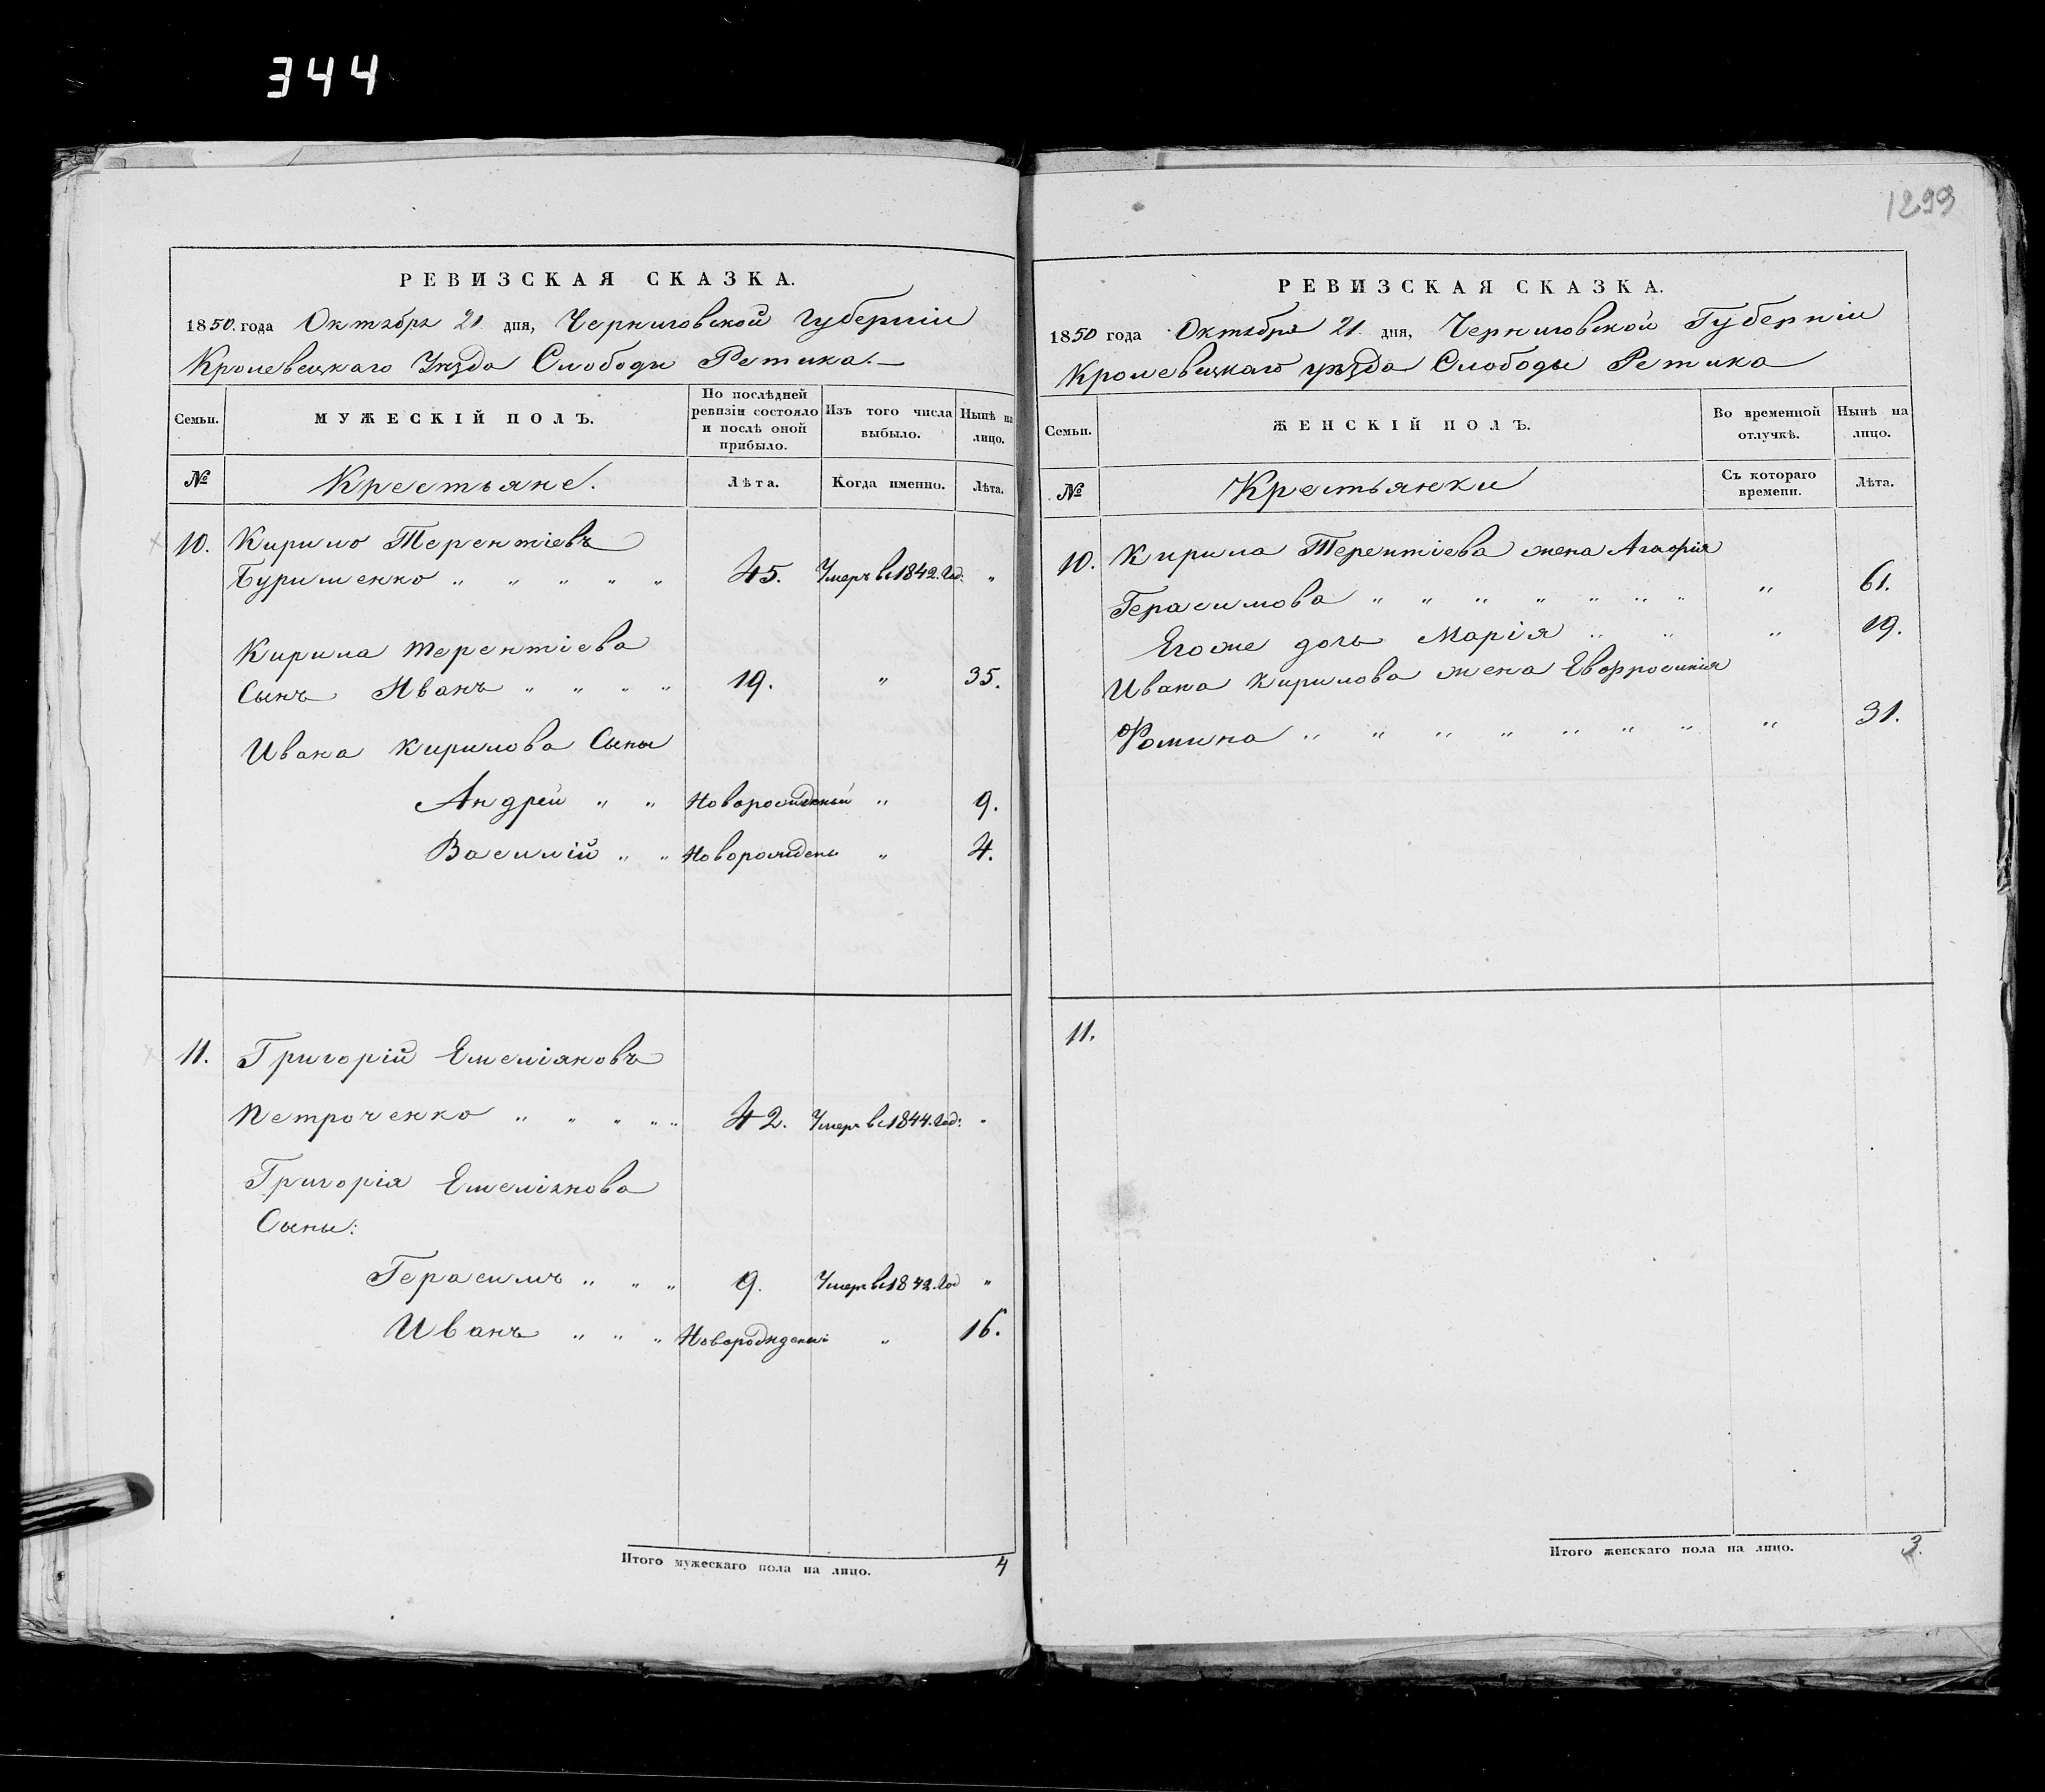 344
РЕВИЗСКАЯ СКАЗКА.
1850. года Октября 21 дня, Черниговской Губерніи
Кролевецкаго Уѣзда Слободы Ретика. —
Семьи.
МУЖЕСКІЙ ПОЛЪ.
По послѣдней ревизіи состояло и послѣ оной прибыло.
Изъ того числа выбыло.
Нынѣ на лицо.
№ Крестьяне. Лѣта. Когда именно. Лѣта.
10. Кирило Терентіевъ
Буришенко „ „ „ „ „ 45. Умеръ в 1842. Год: „
Кирила Терентіева
Сынъ Иванъ „ „ „ „ 19. „ 35.
Ивана Кирилова Сыны
Андрей „ „ Новорожденный „ 9.
Василій „ „ Новорожден „ 4.
11. Григорій Емеліяновъ
Петроченко „ „ „ „ „ 42. Умеръ в 1844. Год: „
Григорія Емеліянова
Сыны:
Герасимъ „ „ „ 9. Умеръ в 1842. Год „
Иванъ „ „ „ Новорожден „ 16.
Итого мужескаго пола на лицо. 4
1299
РЕВИЗСКАЯ СКАЗКА.
1850 года Октября 21 дня, Черниговской Губерніи
Кролевецкаго уѣзда Слободы Ретика
Семьи.
ЖЕНСКІЙ ПОЛЪ.
Во временной отлучкѣ.
Нынѣ на лицо.
№ Крестьянки Съ котораго времени. Лѣта.
10. Кирила Терентіева жена Агафія
Герасимова „ „ „ „ „ „ „ „ 61.
Егоже дочь Марія „ „ „ 19.
Ивана Кирилова жена Евфросинія
Фомина „ „ „ „ „ „ „ „ 31.
11.
Итого женскаго пола на лицо. 3.